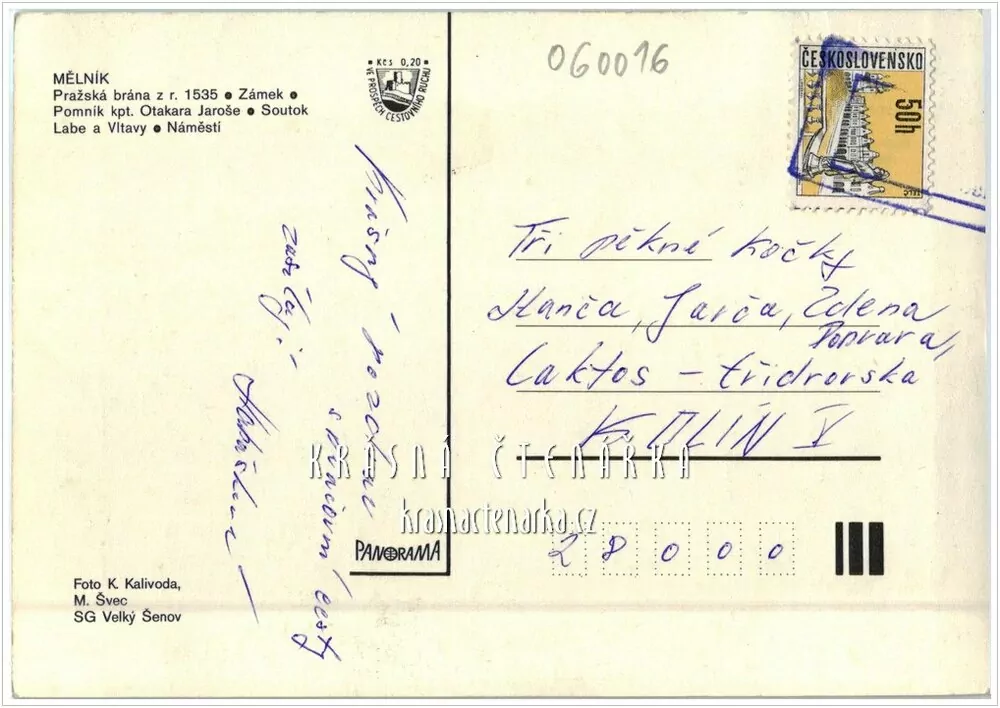 MĚLNÍK
Pražská brána z r. 1535 ● Zámek ●
Pomník kpt. Otakara Jaroše ● Soutok
Labe a Vltavy ● Náměstí
Kčs 0,20
VE PROSPĚCH CESTOVNÍHO RUCHU
060016
ČESKOSLOVENSKO
50h
Krásný pozdrav
zasílá
s pracovní cesty
Tři pěkné kočky
Hanča, Jarča, Zdena
Doprava,
Laktos – třídvorska
KOLÍN V
28000
KRÁSNÁ ČTENÁŘKA
krasnactenarka.cz
PANORAMA
Foto K. Kalivoda,
M. Švec
SG Velký Šenov